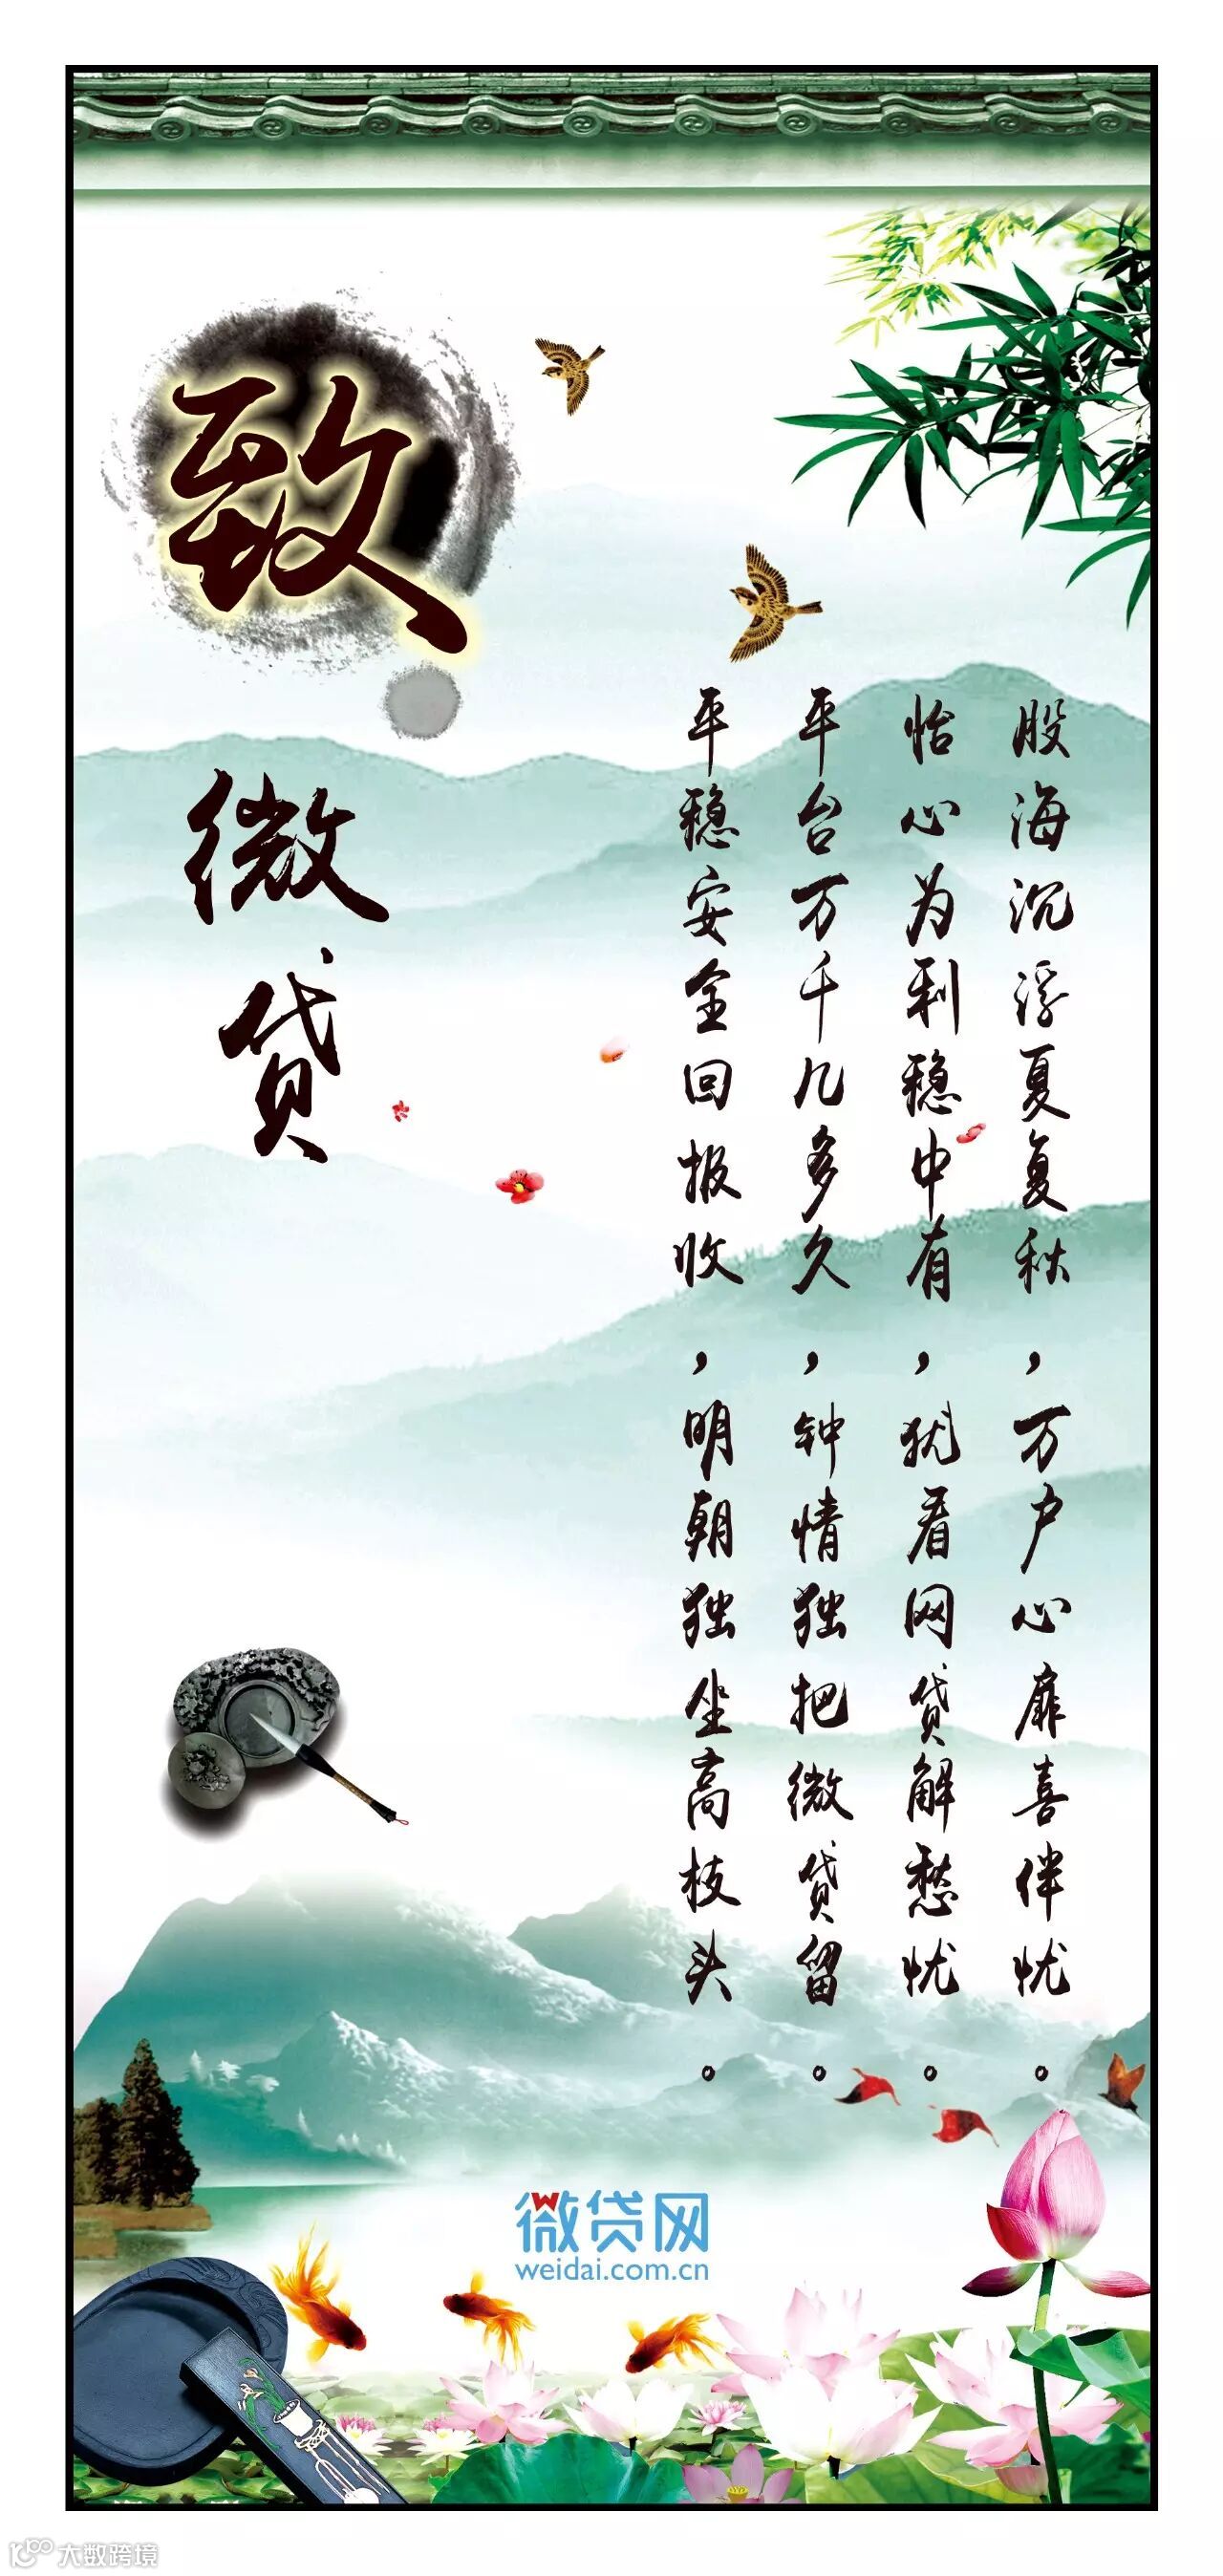 致
微贷
股海沉浮夏复秋，万户心扉喜伴忧。
怡心为利稳中有，犹看网贷解愁忧。
平台万千几多久，钟情独把微贷留。
平稳安全回报收，明朝独坐高枝头。
微贷网
weidai.com.cn
大数跨境